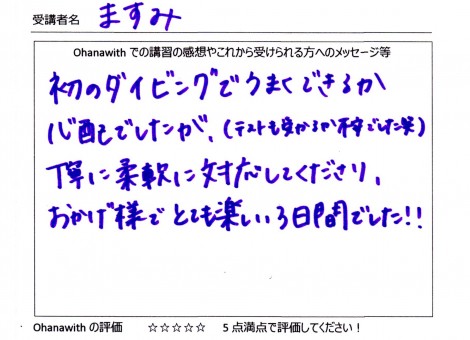 受講者名 ますみ
Ohanawith での講習の感想やこれから受けられる方へのメッセージ等
初のダイビングでうまくできるか
心配でしたが、(テストも受かるか不安でした笑)
丁寧に柔軟に対応してくださり、
おかげ様でとても楽しい3日間でした!!
Ohanawith の評価 ☆☆☆☆☆ 5 点満点で評価してください！